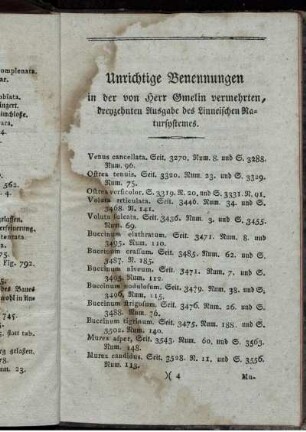 Unrichtige Benennungen
in der von Herr Gmelin vermehrten,
dreyzehnten Ausgabe des Linneischen Na-
tursystemes.
Venus cancellata. Seit. 3270. Num. 8. und S. 3288.
Num. 96.
Ostrea tenuis. Seit. 3320. Num. 23. und S. 3329.
Num. 75.
Ostrea versicolor. S. 3319. N. 20. und S. 3331. N. 91.
Voluta reticulata. Seit. 3440. Num. 34. und S.
3468. N. 141.
Voluta sulcata. Seit. 3436. Num. 3. und S. 3455.
Num. 69.
Buccinum clathratum. Seit. 3471. Num. 8. und
3495. Num. 110.
Buccinum crassum. Seit. 3485. Num. 62. und S.
3487. N. 185.
Buccinum niveum. Seit. 3471. Num. 7. und S.
Num. 112.
Buccinum nodulosum. Seit. 3479. Num. 38. und S.
3496. Num. 115.
Buccinum strigosum. Seit. 3476. Num. 26. und S.
3488. Num. 76.
Buccinum tigrinum. Seit. 3475. Num. 188. und S.
3502. Num. 140.
Murex asper. Seit. 3543. Num. 60. und S. 3563.
Num. 148.
Murex candidus. Seit. 3528. N. 11. und S. 3556.
Num. 113.
)( 4
Mu-